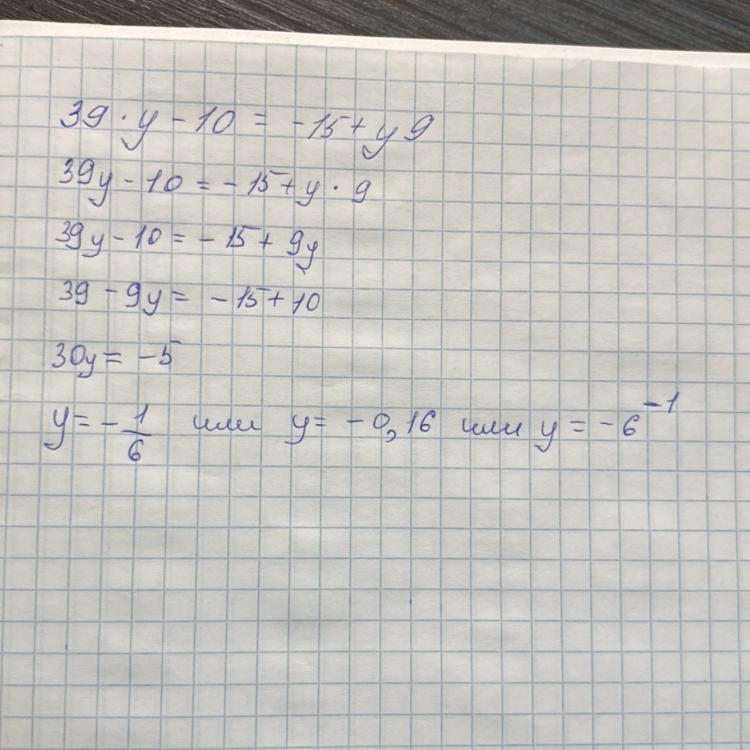 39 · y - 10 = -15 + y 9
39y - 10 = -15 + y · 9
39y - 10 = -15 + 9y
39 - 9y = -15 + 10
30y = -5
y = - 1/6 или y = -0,16 или y = -6^-1